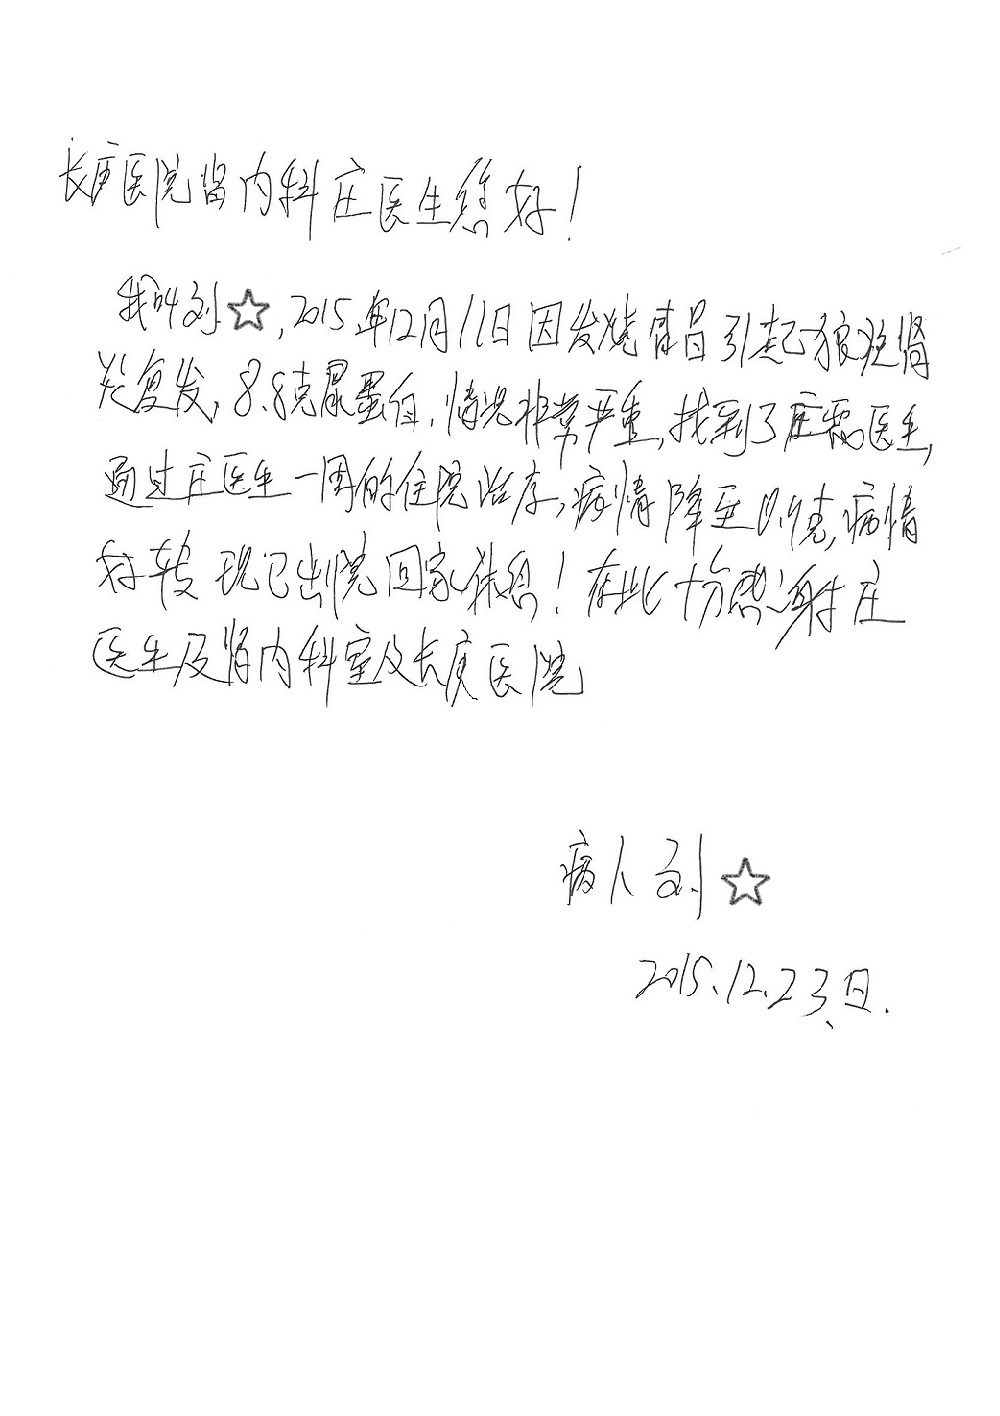 长庚医院肾内科庄医生您好！
我叫刘☆,2015年12月11日因发烧肾引起狼疮肾
炎复发,8.8克尿蛋白,情况非常严重,找到了庄医生,
通过庄医生一周的住院治疗,病情降至克,病情
好转现已出院回家休息！在此十分感谢庄
医生及肾内科室及长庚医院
病人刘☆
2015.12.23日.